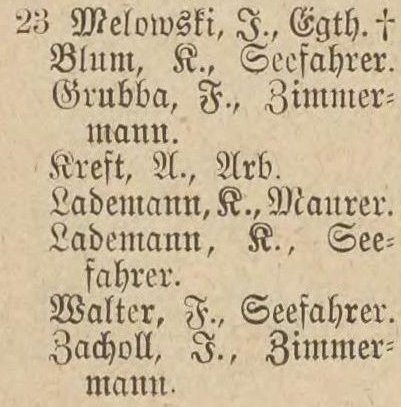 23 Melowski, J., Egth. †
Blum, K., Seefahrer.
Grubba, F., Zimmer-
mann.
Kreft, A., Arb.
Lademann, K., Maurer.
Lademann, K., See-
fahrer.
Walter, F., Seefahrer.
Zacholl, J., Zimmer-
mann.